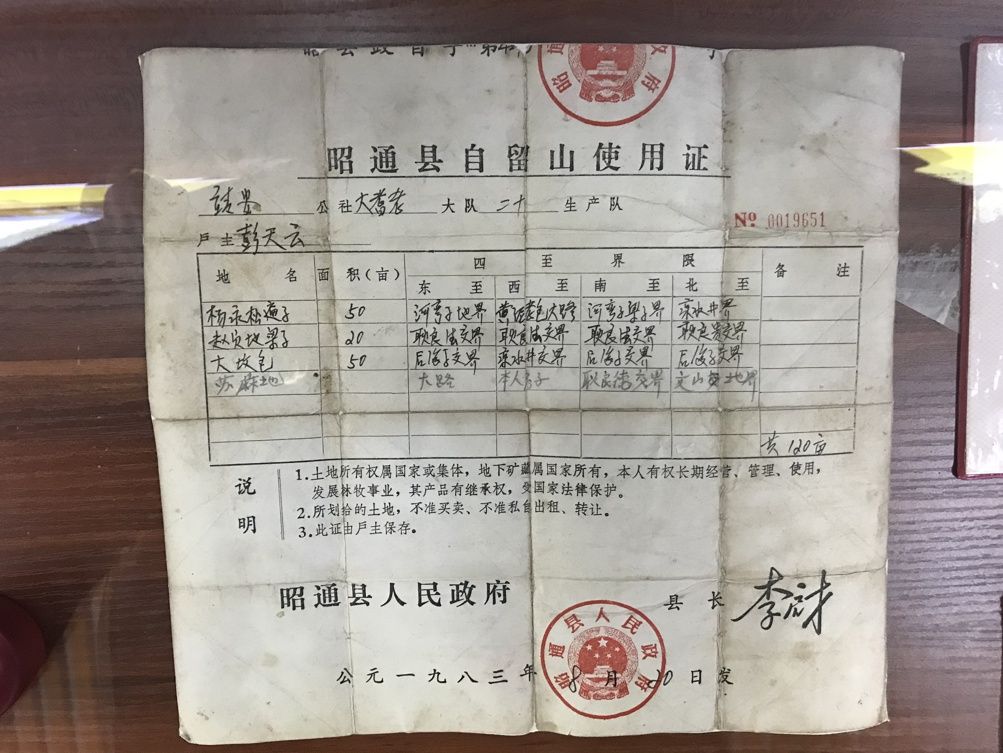 昭通县自留山使用证
公社 大队 二十 生产队
№ 0019651
户主彭天云
地名 面积(亩) 四至界限 备注
东至 西至 南至 北至
杨家松 子 50 河湾子地界 大路 河湾梁子界 凉水井界
地梁子 20 耿良法交界 耿良法交界 耿良法交界 耿良 交界
大坟包 50 交界 凉水井交界 交界 交界
苏麻地 大路 本人房子 耿良 交界 地界
共120亩
说明
1.土地所有权属国家或集体，地下矿藏属国家所有，本人有权长期经营、管理、使用，
发展林牧事业，其产品有继承权，受国家法律保护。
2.所划给的土地，不准买卖、不准私自出租、转让。
3.此证由户主保存。
昭通县人民政府
县长 李
昭通县人民政府
公元一九八三年8月20日发